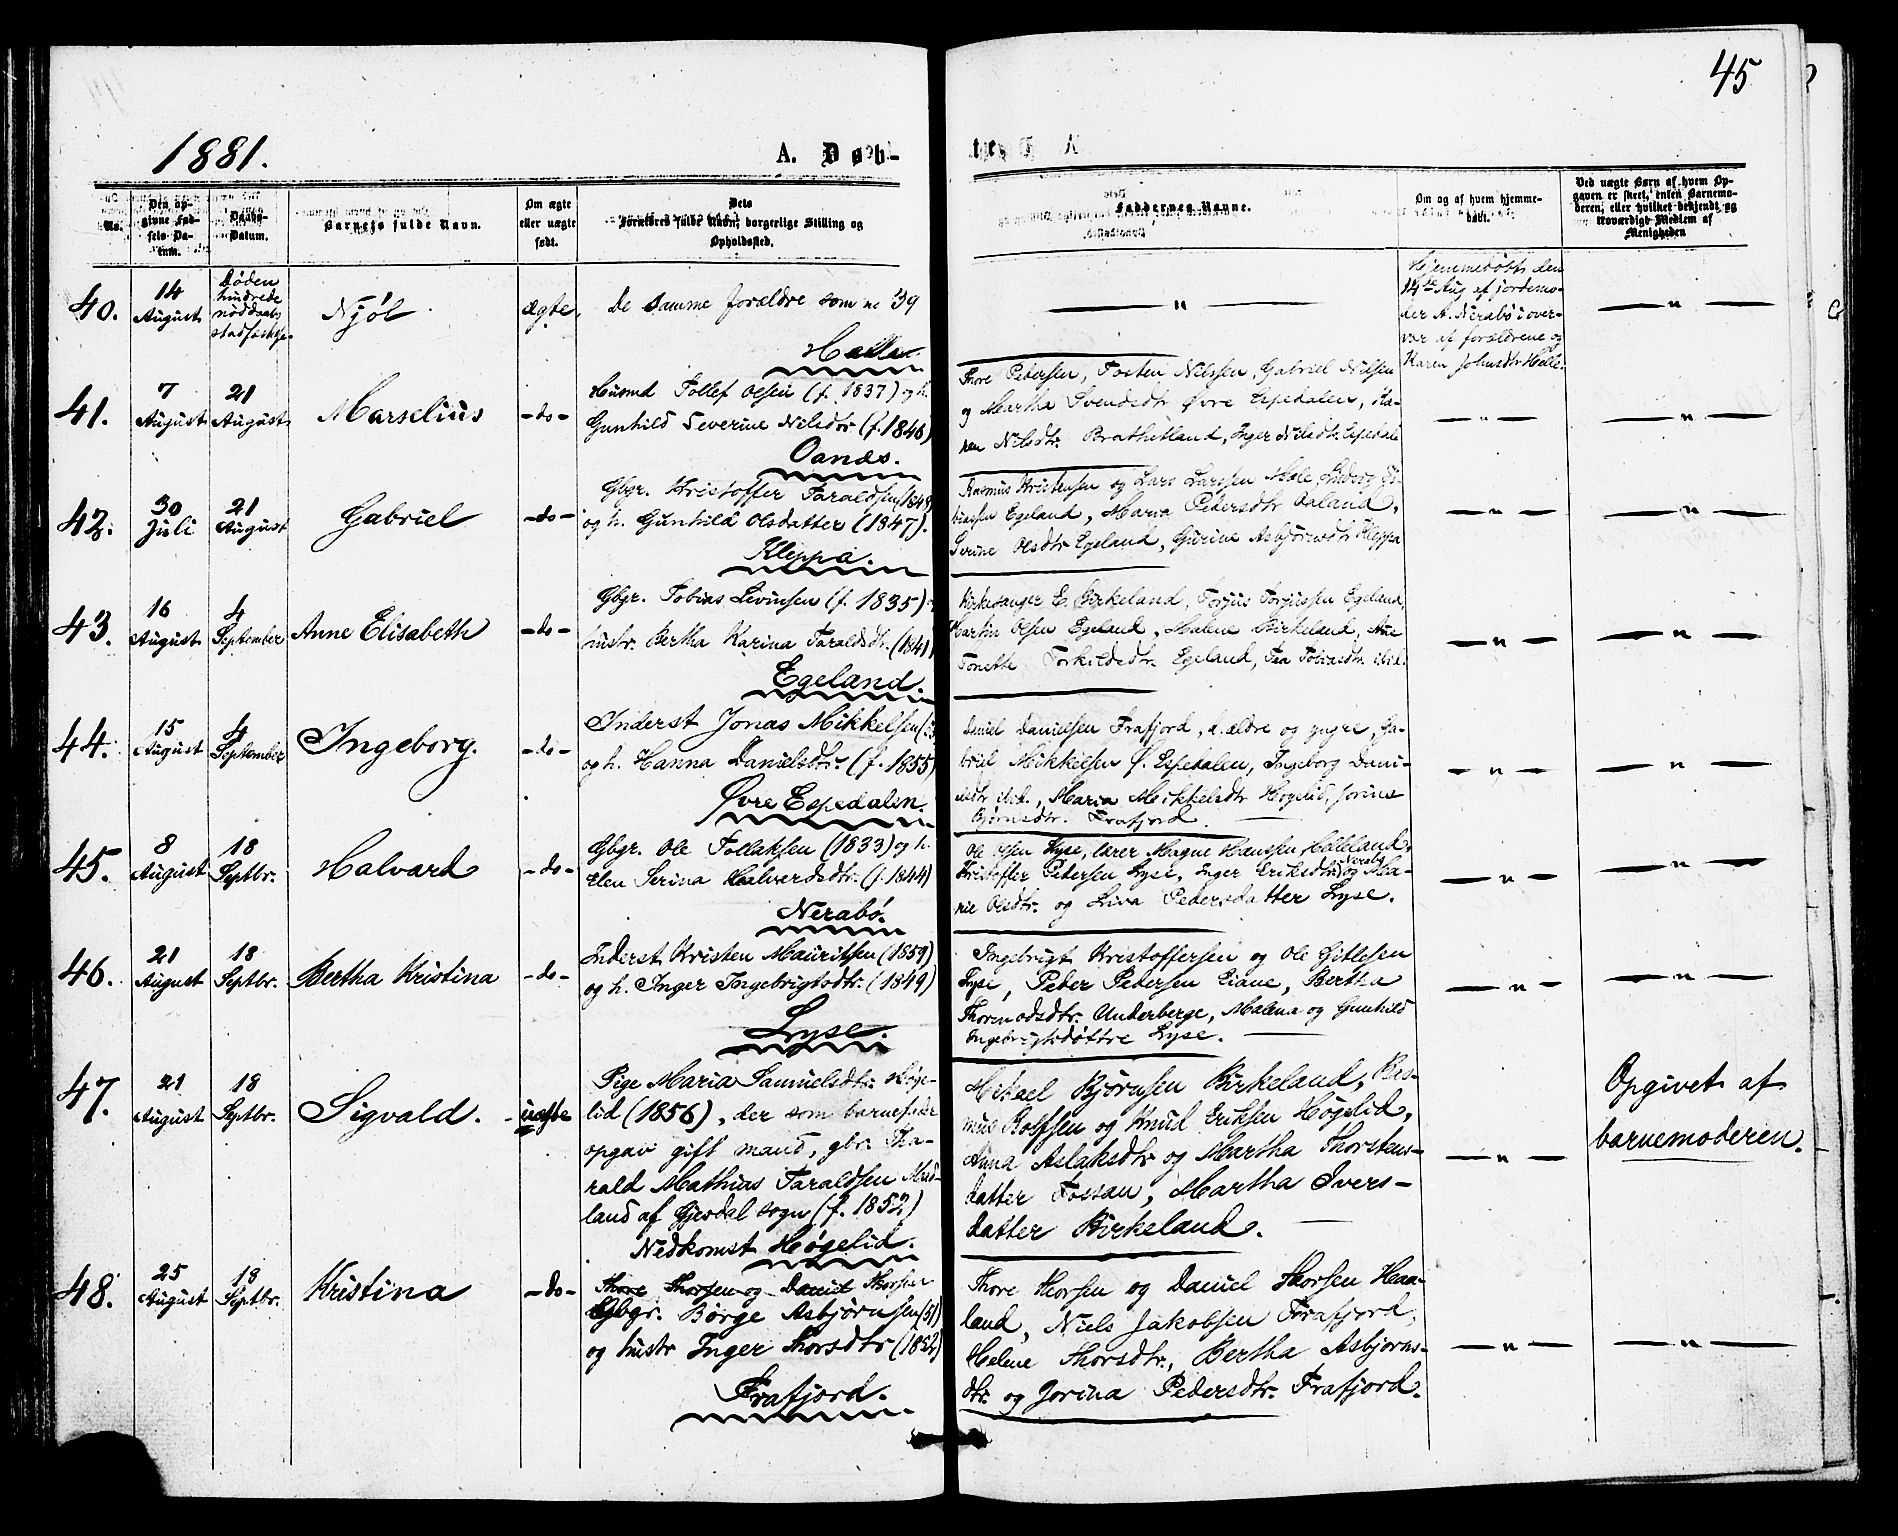 45
1881.
A. Døb-
No.
Den op-
givne Fød-
sels Da-
tum.
Daabs-
Datum.
Barnets fulde Navn.
Om ægte
eller uægte
født.
Dets
Forældres fulde Navn, borgerlige Stilling og
Opholdssted.
Faddernes Navne.
Om og af hvem hjemme-
døbt.
Ved uægte Børn af hvem Op-
gaven er skeet, enten Barnemo-
deren, eller hvilket bekjendt og
troværdigt Medlem af
Menigheden
40.
14
August
Døden
hindrede
nøddaabs
stadfæstge.
Njøl
ægte,
De samme forældre som no 39
Halle
— " —
Hjemmedøbt den
14de Aug af jordemo-
der A. Nerabø i over-
vær af forældrene og
Karen Johnsdtr Helle.
— " —
41.
7
August
21
August
Marselius
- do -
Husmd Tollef Olsen (f. 1837) og h.
Gunhild Severine Nilsdtr (f. 1846)
Oanes.
Thore Pedersen, Tosten Nilssen, Gabriel Nilsen
og Martha Svendsdtr Øvre Espedalen, Ka-
ren Nilsdtr. Brathetland, Inger Nilsdtr. Espedale
— " —
— " —
42.
30
Juli
21
August
Gabriel
- do -
Gbgr. Kristoffer Taraldsen (1848)
og h. Gunhild Olsdatter (1847).
Kleppa.
Rasmus Kristensen og Lars Larssen Mæle, Ludvig To-
biassen Egeland, Maria Pedersdtr Daland,
Serine Olsdtr Egeland, Gurine Asbjørnsdtr Kleppa
— " —
— " —
43.
16
August
4
September
Anne Elisabeth
- do -
Gbgr. Tobias Levinsen (f. 1835) og
hustr. Bertha Karina Taraldsdtr. (1841)
Egeland.
Kirkesanger E. Birkeland, Torjus Torjussen Egeland,
Martin Olsen Egeland, Malene Birkeland, Ane
Tonette Torkildsdtr. Egeland, Tea Tobiasdtr. ibid.
— " —
— " —
44.
15
August
4
September
Ingeborg.
- do -
Inderst Jonas Mikkelsen
og h. Hanna Danielsdtr. (f. 1855)
Øvre Espedalen.
Daniel Danielsen Frafjord, d. ældre og yngre, Ga-
briel Mikkelsen Ø. Espedalen, Ingeborg Dani-
elsdtr ibid., Maria Mikkelsdtr Høgelid, Jorine
Bjørnsdtr. Frafjord.
— " —
— " —
45.
8
August
18
Septbr.
Halvard
- do -
Gbgr. Ole Tollaksen (1833) og h.
Elen Serina Halvardsdtr. (f. 1844)
Nerabø.
Ole Olsen Lyse, lærer Magne Hansen Helleland,
Kristoffer Pedersen Lyse, Inger Eriksdtr. Nerabø og Ma-
rie Olsdtr. og Liva Pedersdatter Lyse.
— " —
— " —
46.
21
August
18
Septbr.
Bertha Kristina
- do -
Inderst Kristen Mauritsen (1859)
og h. Inger Ingebrigtsdtr. (1849)
Lyse.
Ingebrigt Kristoffersen og Ole Gitlesen
Lyse, Peder Pedersen Eiane, Bertha
Thormodsdtr. Underberge, Malena og Gunhild
Ingebrigtsdøttre Lyse.
— " —
— " —
47.
21
August
18
Septbr.
Sigvald.
uægte
Pige Maria Samuelsdtr. Høge-
lid (1856), der som barnefader
opgav gift mand, gbr. Ta-
rald Mathias Taraldsen Mad-
land af Gjesdal sogn (f. 1852)
Nedkomst Høgelid.
Mikael Bjørnsen Birkeland, Ras-
mus Rolfsen og Knud Eriksen Høgelid,
Anna Aslaksdtr og Martha Thorstens-
datter Fossan, Martha Ivers-
datter Birkeland.
— " —
Opgivet af
barnemoderen.
48.
25
August
18
Septbr.
Kristina
- do -
Thore Thorsen og Daniel Thorsen
Gbgr. Børge Asbjørnsen (51)
og hustr Inger Thorsdtr (1852)
Frafjord.
Thore Thorsen og Daniel Thorsen Haa-
land, Niels Jakobsen Frafjord,
Helene Thorsdtr., Bertha Asbjørns-
dtr. og Jorina Pedersdtr. Frafjord.
— " —
— " —